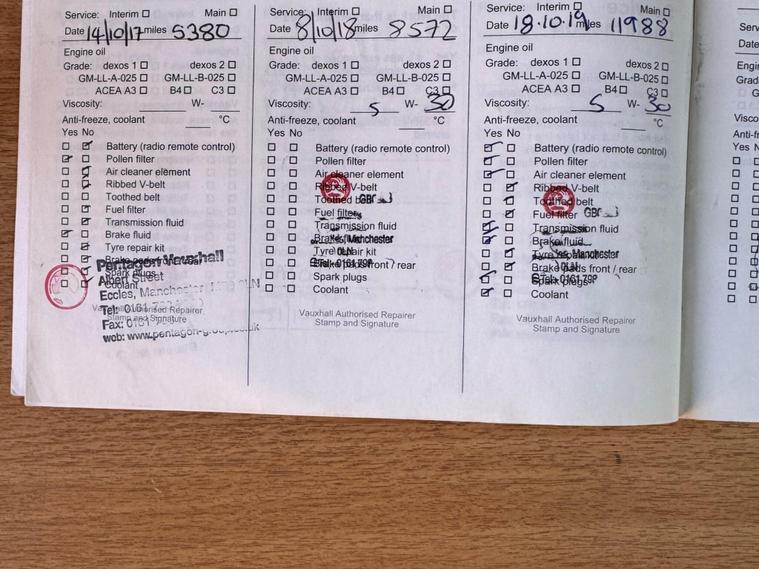 Service: Interim Main
Date 14/10/17 miles 5380
Engine oil
Grade: dexos 1 dexos 2
GM-LL-A-025 GM-LL-B-025
ACEA A3 B4 C3
Viscosity: W-
Anti-freeze, coolant °C
Yes No
Battery (radio remote control)
Pollen filter
Air cleaner element
Ribbed V-belt
Toothed belt
Fuel filter
Transmission fluid
Brake fluid
Tyre repair kit
Spark plugs
Coolant
Pentagon Vauxhall
Albert Street
Eccles, Manchester
Tel: 0161
Fax: 0161
web: www.pentagon-group.co.uk
Vauxhall Authorised Repairer
Stamp and Signature
Service: Interim Main
Date 8/10/18 miles 8572
Engine oil
Grade: dexos 1 dexos 2
GM-LL-A-025 GM-LL-B-025
ACEA A3 B4 C3
Viscosity: 5 W- 30
Anti-freeze, coolant °C
Yes No
Battery (radio remote control)
Pollen filter
Air cleaner element
Ribbed V-belt
Toothed
Fuel filter
Transmission fluid
Brake fluid
Manchester
Tyre repair kit
front / rear
Spark plugs
Coolant
Vauxhall Authorised Repairer
Stamp and Signature
Service: Interim Main
Date 18.10.19 miles 11988
Engine oil
Grade: dexos 1 dexos 2
GM-LL-A-025 GM-LL-B-025
ACEA A3 B4 C3
Viscosity: 5 W- 30
Anti-freeze, coolant °C
Yes No
Battery (radio remote control)
Pollen filter
Air cleaner element
Ribbed V-belt
Toothed belt
Fuel filter
Transmission fluid
Brake fluid
Tyre
Brake pads front / rear
Spark plugs
Coolant
Vauxhall Authorised Repairer
Stamp and Signature